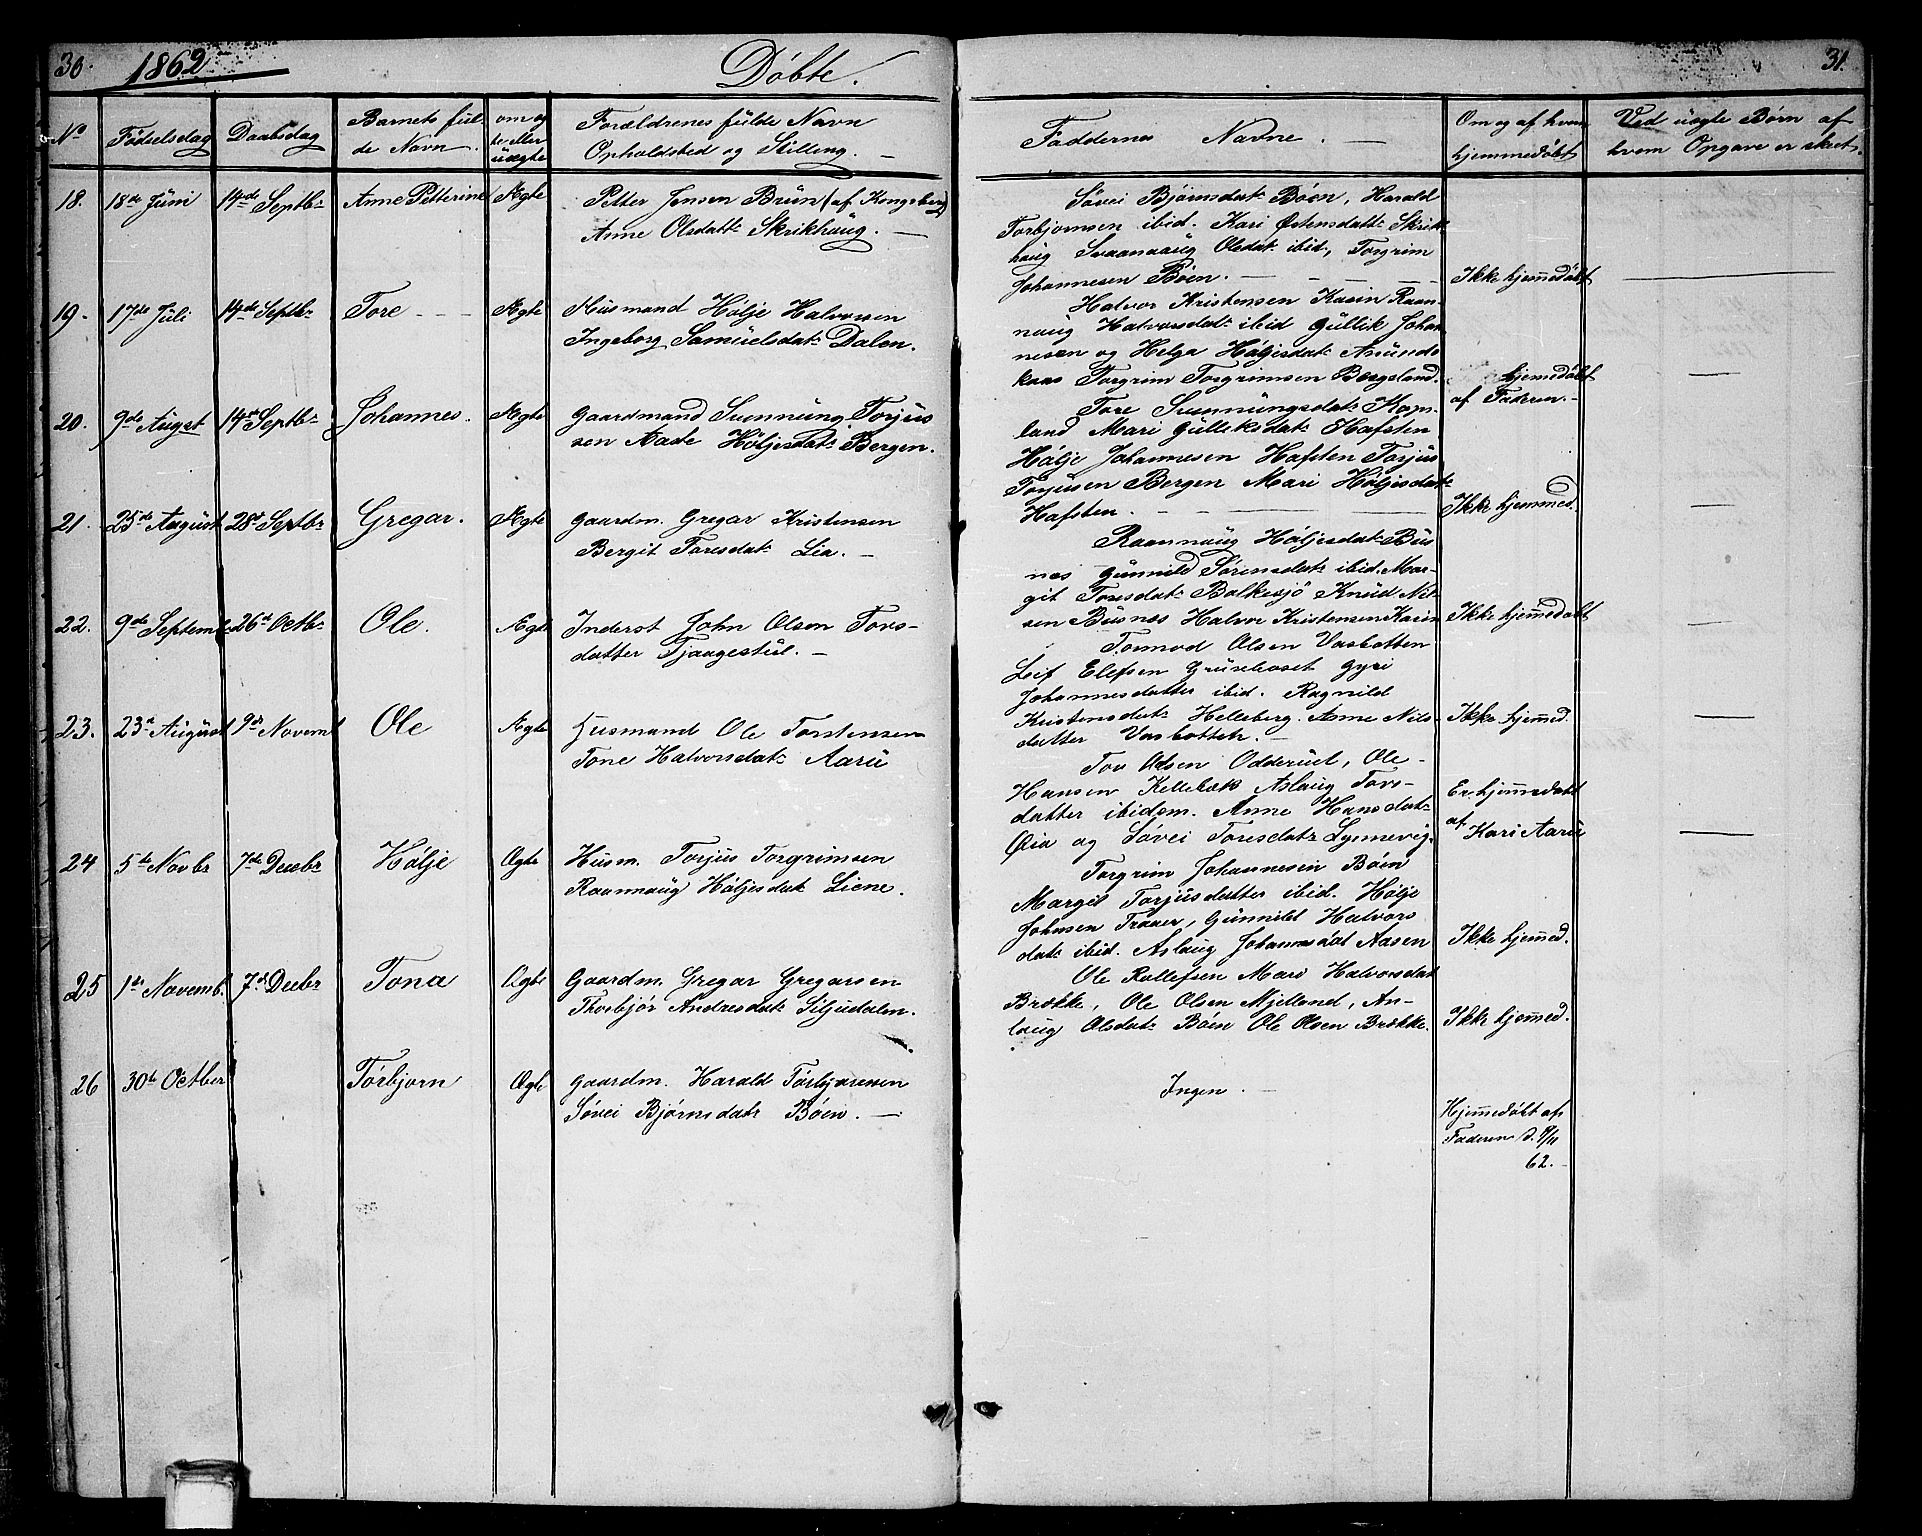 30. 1862 Döbte. 31.
No Födselsdag Daabsdag Barnets ful- de Navn. om æg- te eller uægte Forældrenes fulde Navn Opholdsted og Stilling. —
Faddernes Navne. — Om og af hvem hjemmedöbt Ved uægte Börn af hvem Opgave er skeet.
18. 18de Juni 14de Septbr Anne Petterine Ægte Petter Jensen Brun (af Kongsberg)
Anne Olsdatt: Skrikhaug. —
Sövei Björnsdat: Böen, Harald
Torbjornsen ibid. Kari Østensdatt: Skrik
haug Svaanaug Olsdat: ibid, Torgrim
Johannesen Böen. — Ikke hjemedöbt
19. 17de Juli 14de Septbr Tore Ægte Husmand Hölje Halvorsen
Ingeborg Samuelsdat: Dalen.
Halvor Kristensen Kasin Raan-
naug Halvorsdat: ibid Gullik Johan-
nesen og Helga Höljesdat: Anunds
kaas Torgrim Torgrimsen Bergsland. hjemedöbt
af Faderen. —
20. 9de Augst 14de Septbr Johannes. Ægte Gaardmand Sunnung Torjus
sen Aade Höljesdat: Bergen.
Tore Sunnungsdat: Kop-
land Mari Gulleksdat: Hafsten
Hölje Johannesen Hafsten Torjus
Torjusen Bergen Mari Höljesdat:
Hafsten. — Ikke hjemmed.
21. 25de August 28de Septbr Gregar. Ægte Gaardm. Gregar Kristensen
Bergit Toresdat: Lia. —
Raannaug Höljesdat: Bus
nes Gunnild Sörensdat: ibid. Mar-
git Toresdat: Bolkesjö Knud Nil-
sen Busnes Halvor Kristensen Kasin Ikke hjemedöbt
22. 9de Septemb. 26de Octbr Ole. Ægte Inderst John Olsen Tovs-
datter Tjaagestul. —
Tormod Olsen Vasbotten
Leif Elefsen Grusehoset Gyri
Johannesdatter ibid. Ragnild
Kristensdat: Helleberg. Anne Nils-
datter Vasbotten. — Ikke hjemed.
23. 23de August 9de Novem Ole Ægte Husmand Ole Torstensen
Tone Halvorsdat: Aaru
Tov Olsen Odderud, Ole
Hansen Kellebæk Aslaug Tovs-
datter ibidem. Anne Hansdat:
Øia og Sövei Toresdat: Lynnevig. Er hjemedöbt
af Kari Aaru
24 5te Novbr 7de Decbr Hölje Ægte Husm. Torjus Torgrimsen
Raannaug Höljesdat Liene.
Torgrim Johannesen Böen
Margit Torjusdatter ibid. Hölje
Johnsen Traaer, Gunnild Halvors
dat: ibid. Aslaug Johannesdat Aasen Ikke hjemed.
25 1de Novemb. 7de Decbr Tona Ægte Gaardm. Gregar Gregarsen
Thorbjör Andresdat: Siljudalen.
Ole Rollefsen Mari Halvorsdat
Brække, Ole Olsen Mjelland, An-
laug Olsdat: Böen Ole Olsen Brække. Ikke hjemed.
26 30te Octber Törbjorn Ægte Gaardm. Harald Törbjornsen
Sövei Björnsdat: Böen. —
Ingen. —
Hjemedöbt af
Faderen d. 9/11
62. —